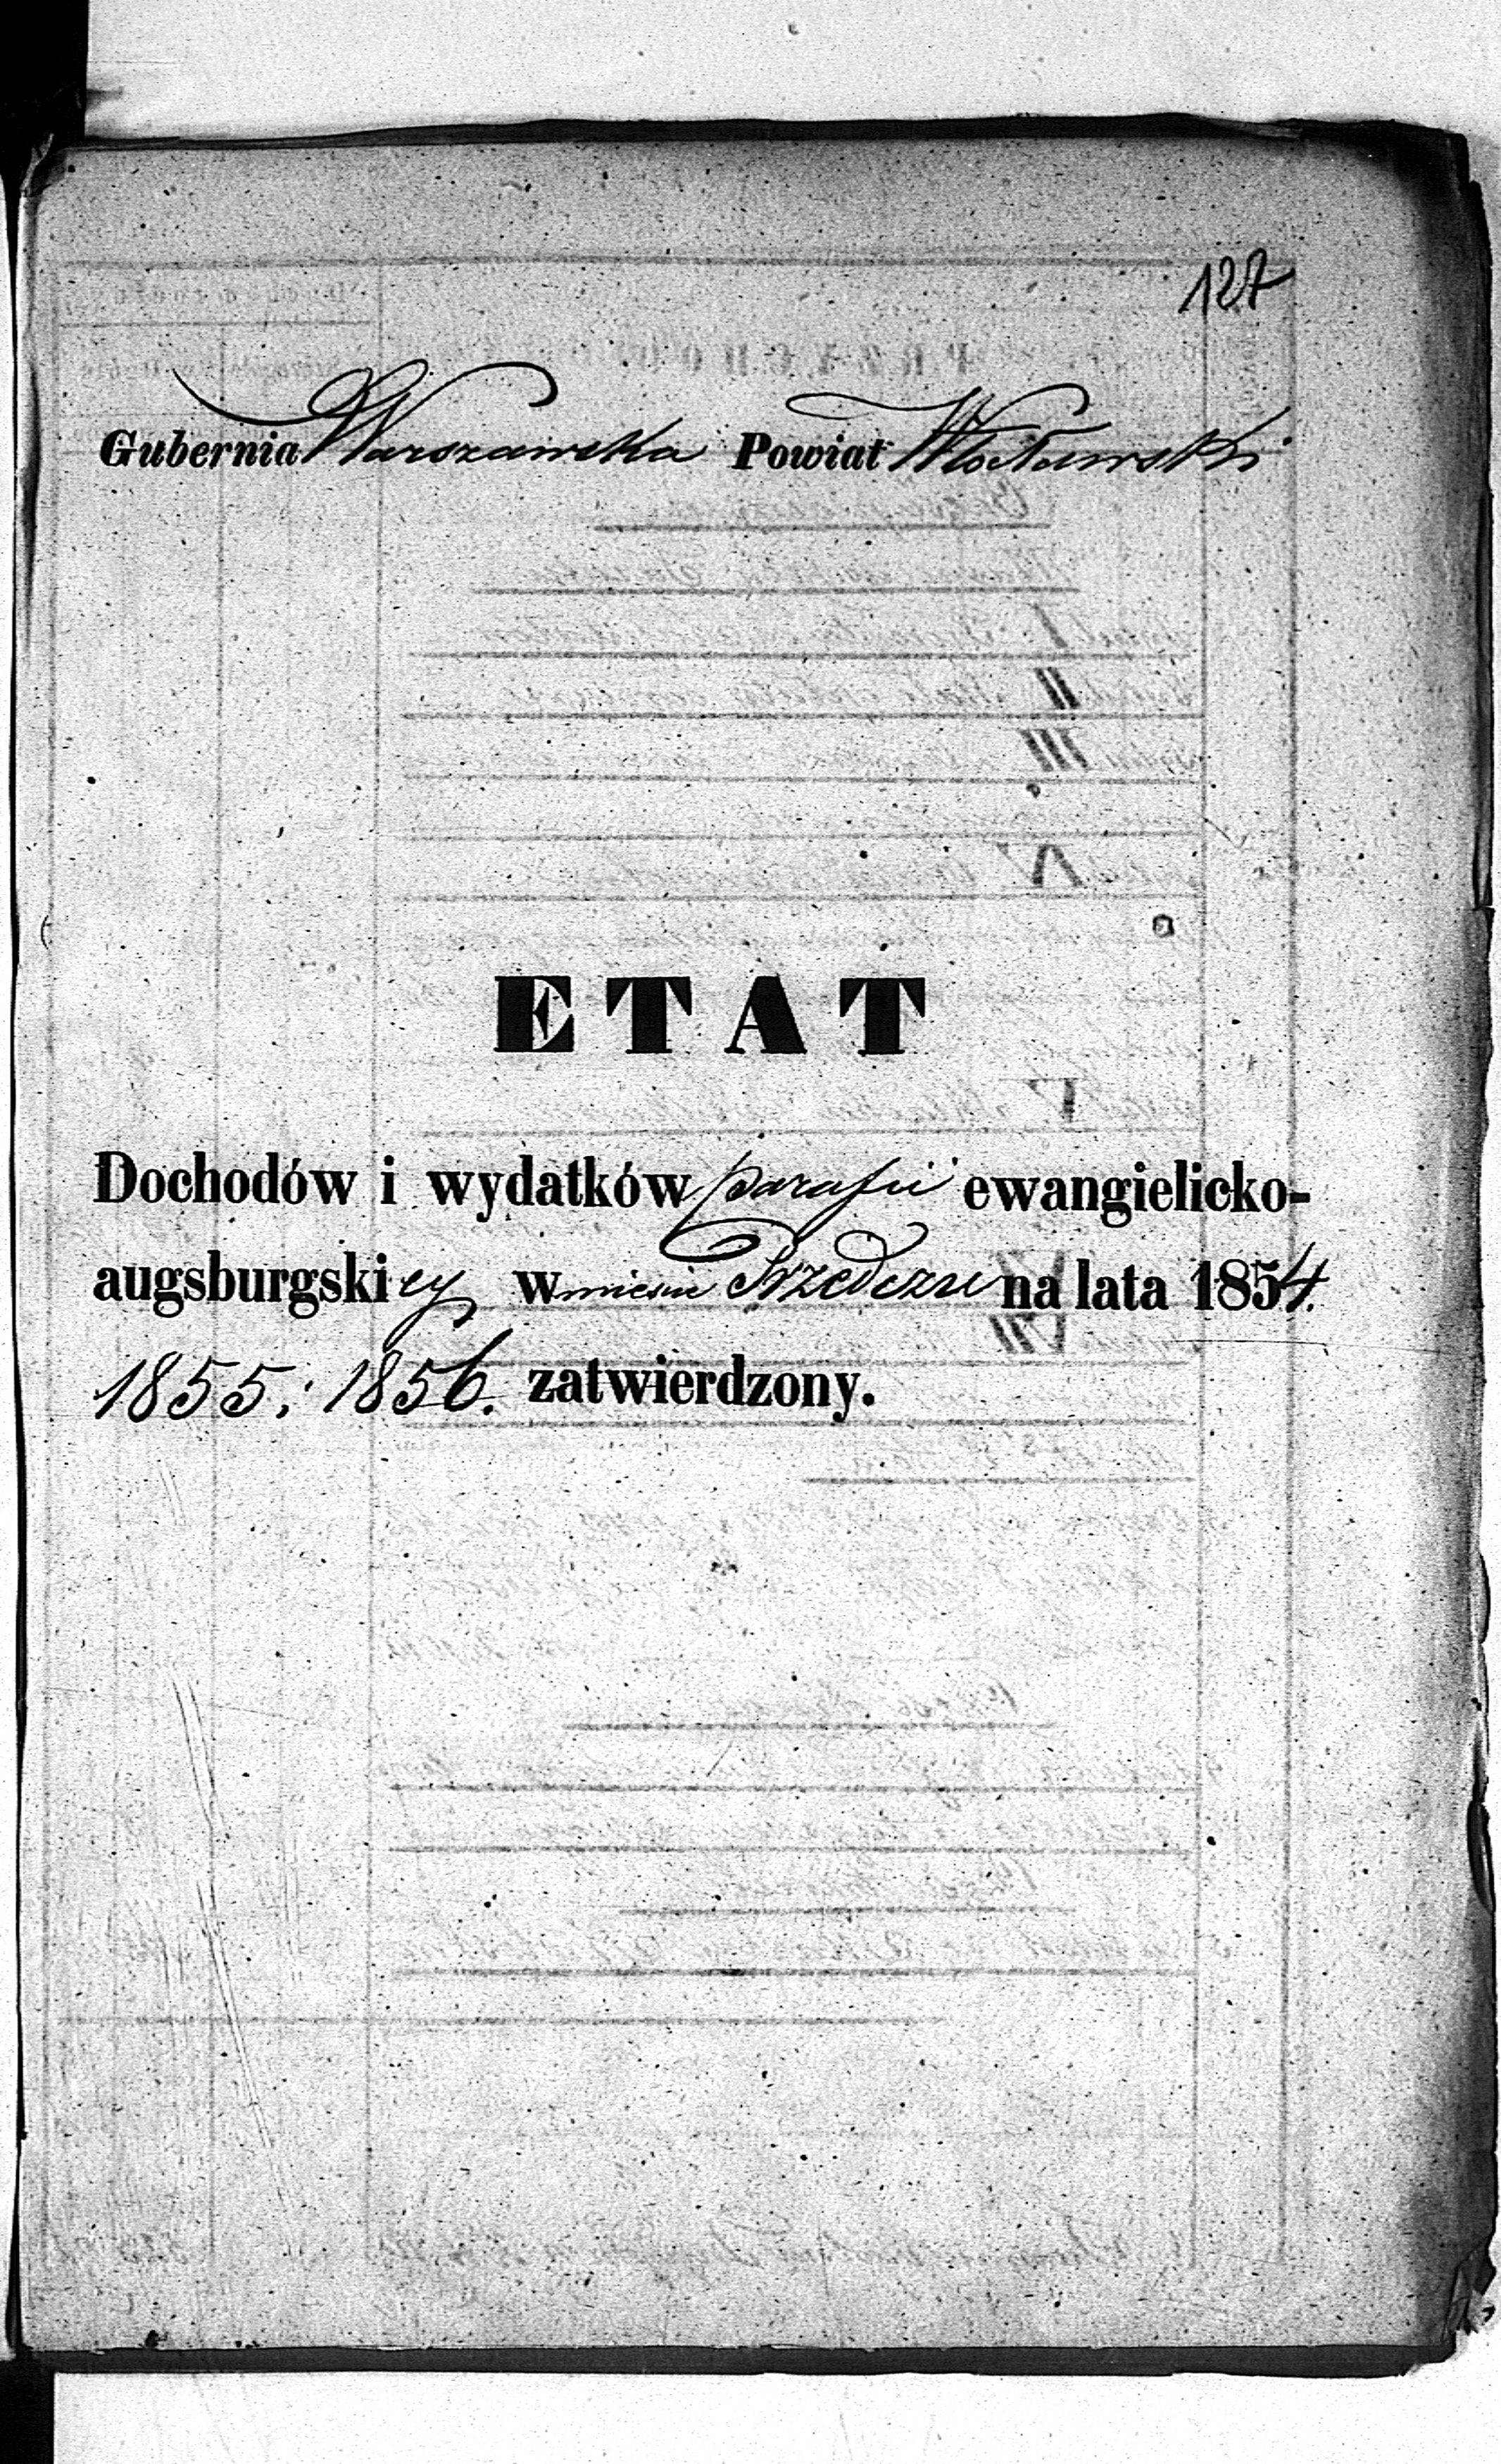 127
Gubernia Warszawska Powiat Włocławski
ETAT
Dochodów i wydatków parafii ewangielicko-
augsburgskiey w mieście Przedczu na lata 1854.
1855, 1856. zatwierdzony.